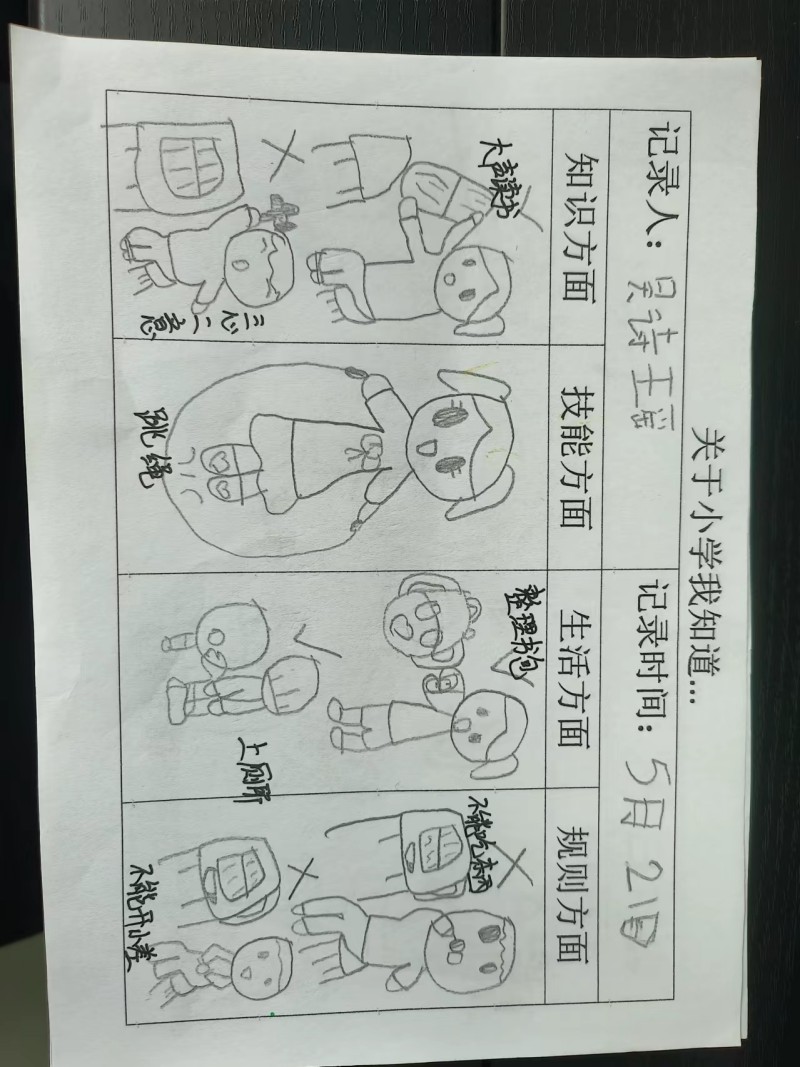 关于小学我知道...
记录人：吴诗王
记录时间：5月21日
知识方面
技能方面
生活方面
规则方面
大声读书
三心
二意
跳绳
整理书包
上厕所
不能吃东西
不能开小差